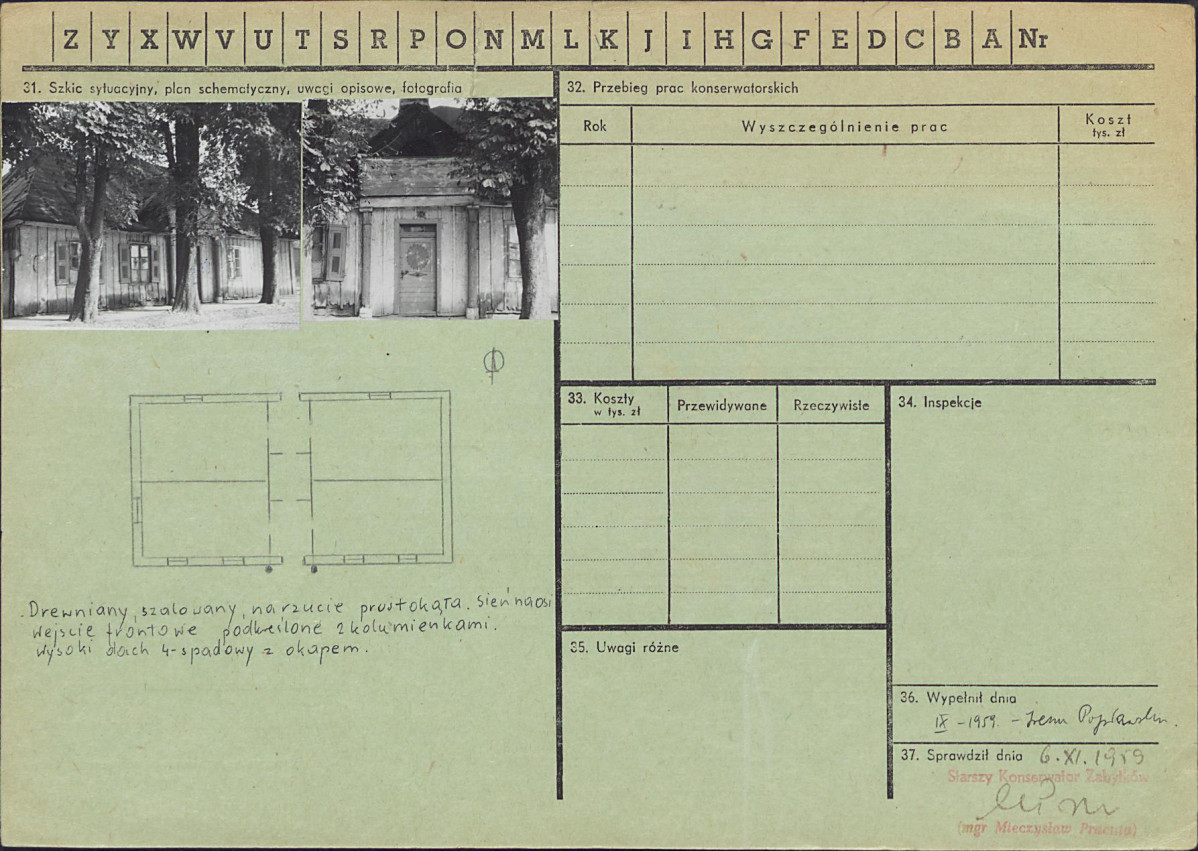 Z Y X W V U T S R P O N M L K J I H G F E D C B A Nr
31. Szkic sytuacyjny, plan schematyczny, uwagi opisowe, fotografia
Drewniany, szalowany, na rzucie prostokąta. Sień na osi
Wejście frontowe podkreślone 2 kolumienkami.
Wysoki dach 4-spadowy z okapem.
32. Przebieg prac konserwatorskich
Rok
Wyszczególnienie prac
Koszt
tys. zł
33. Koszty
w tys. zł
Przewidywane
Rzeczywiste
34. Inspekcje
35. Uwagi różne
36. Wypełnił dnia
IX - 1959. - Irena Popławska.
37. Sprawdził dnia 6.XI.1959
Starszy Konserwator Zabytków
(mgr Mieczysław Pracuta)